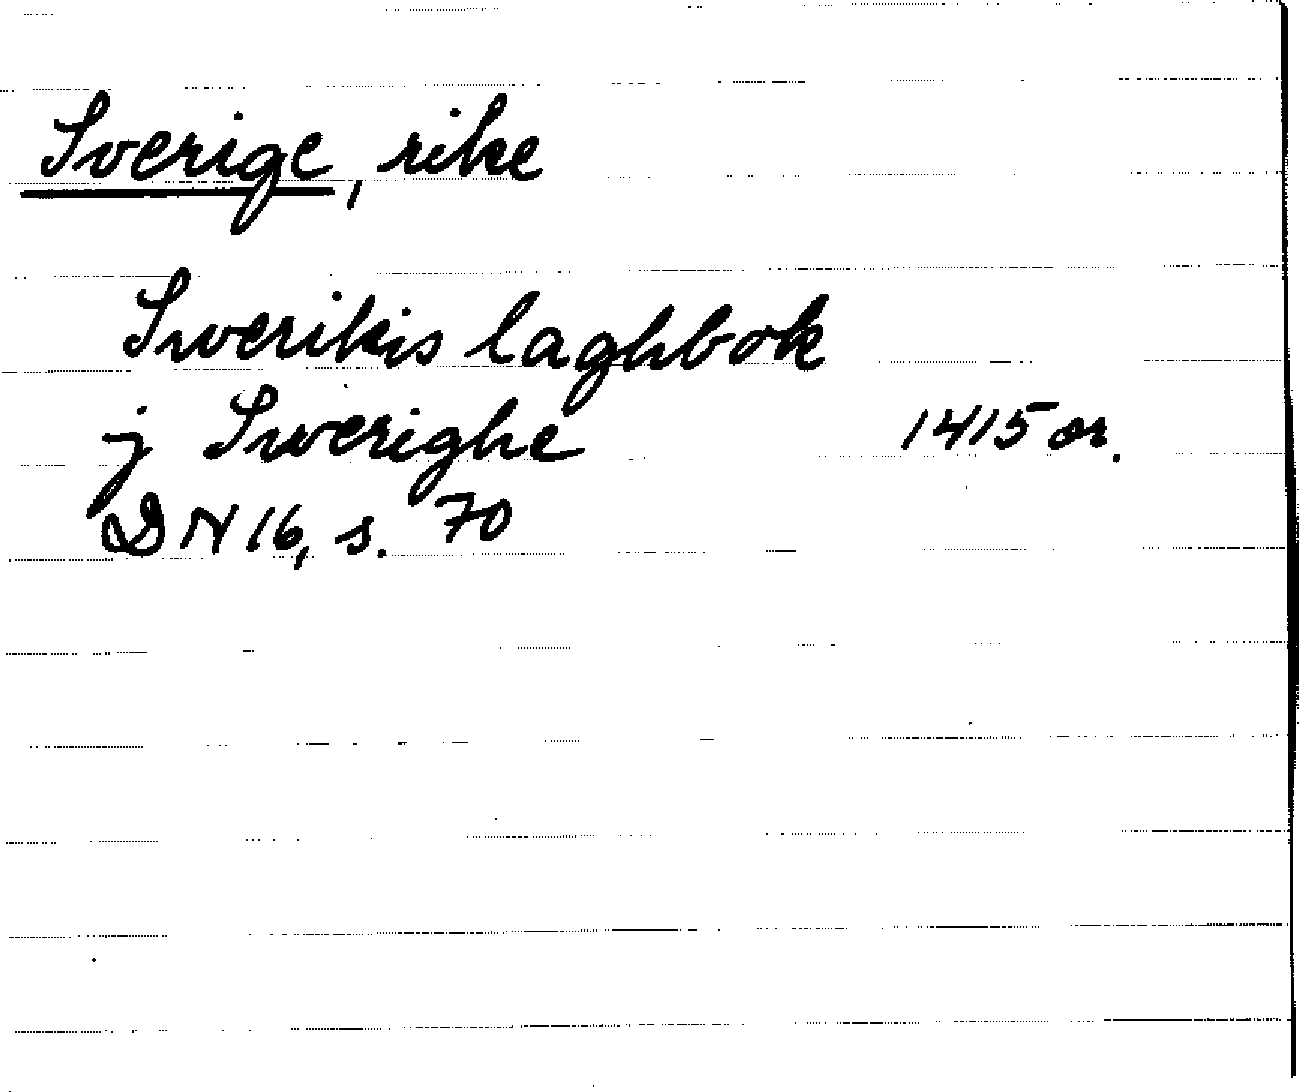 Sverige, rike
Swerikis laghbok
j Swerighe 1415 or.
DN 16, s. 70